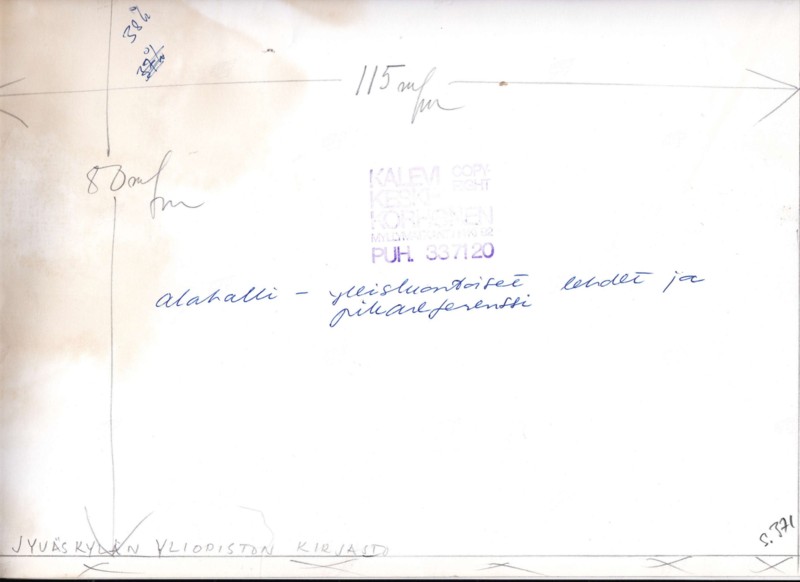 38ü
115 m/m
80 m/m
KALEVI COPY-
KESKI- RIGHT
KORHONEN
PUH. 337120
alahalli – yleisluontoiset lehdet ja
pikareferenssi
JYVÄSKYLÄN YLIOPISTON KIRJASTO
s. 371